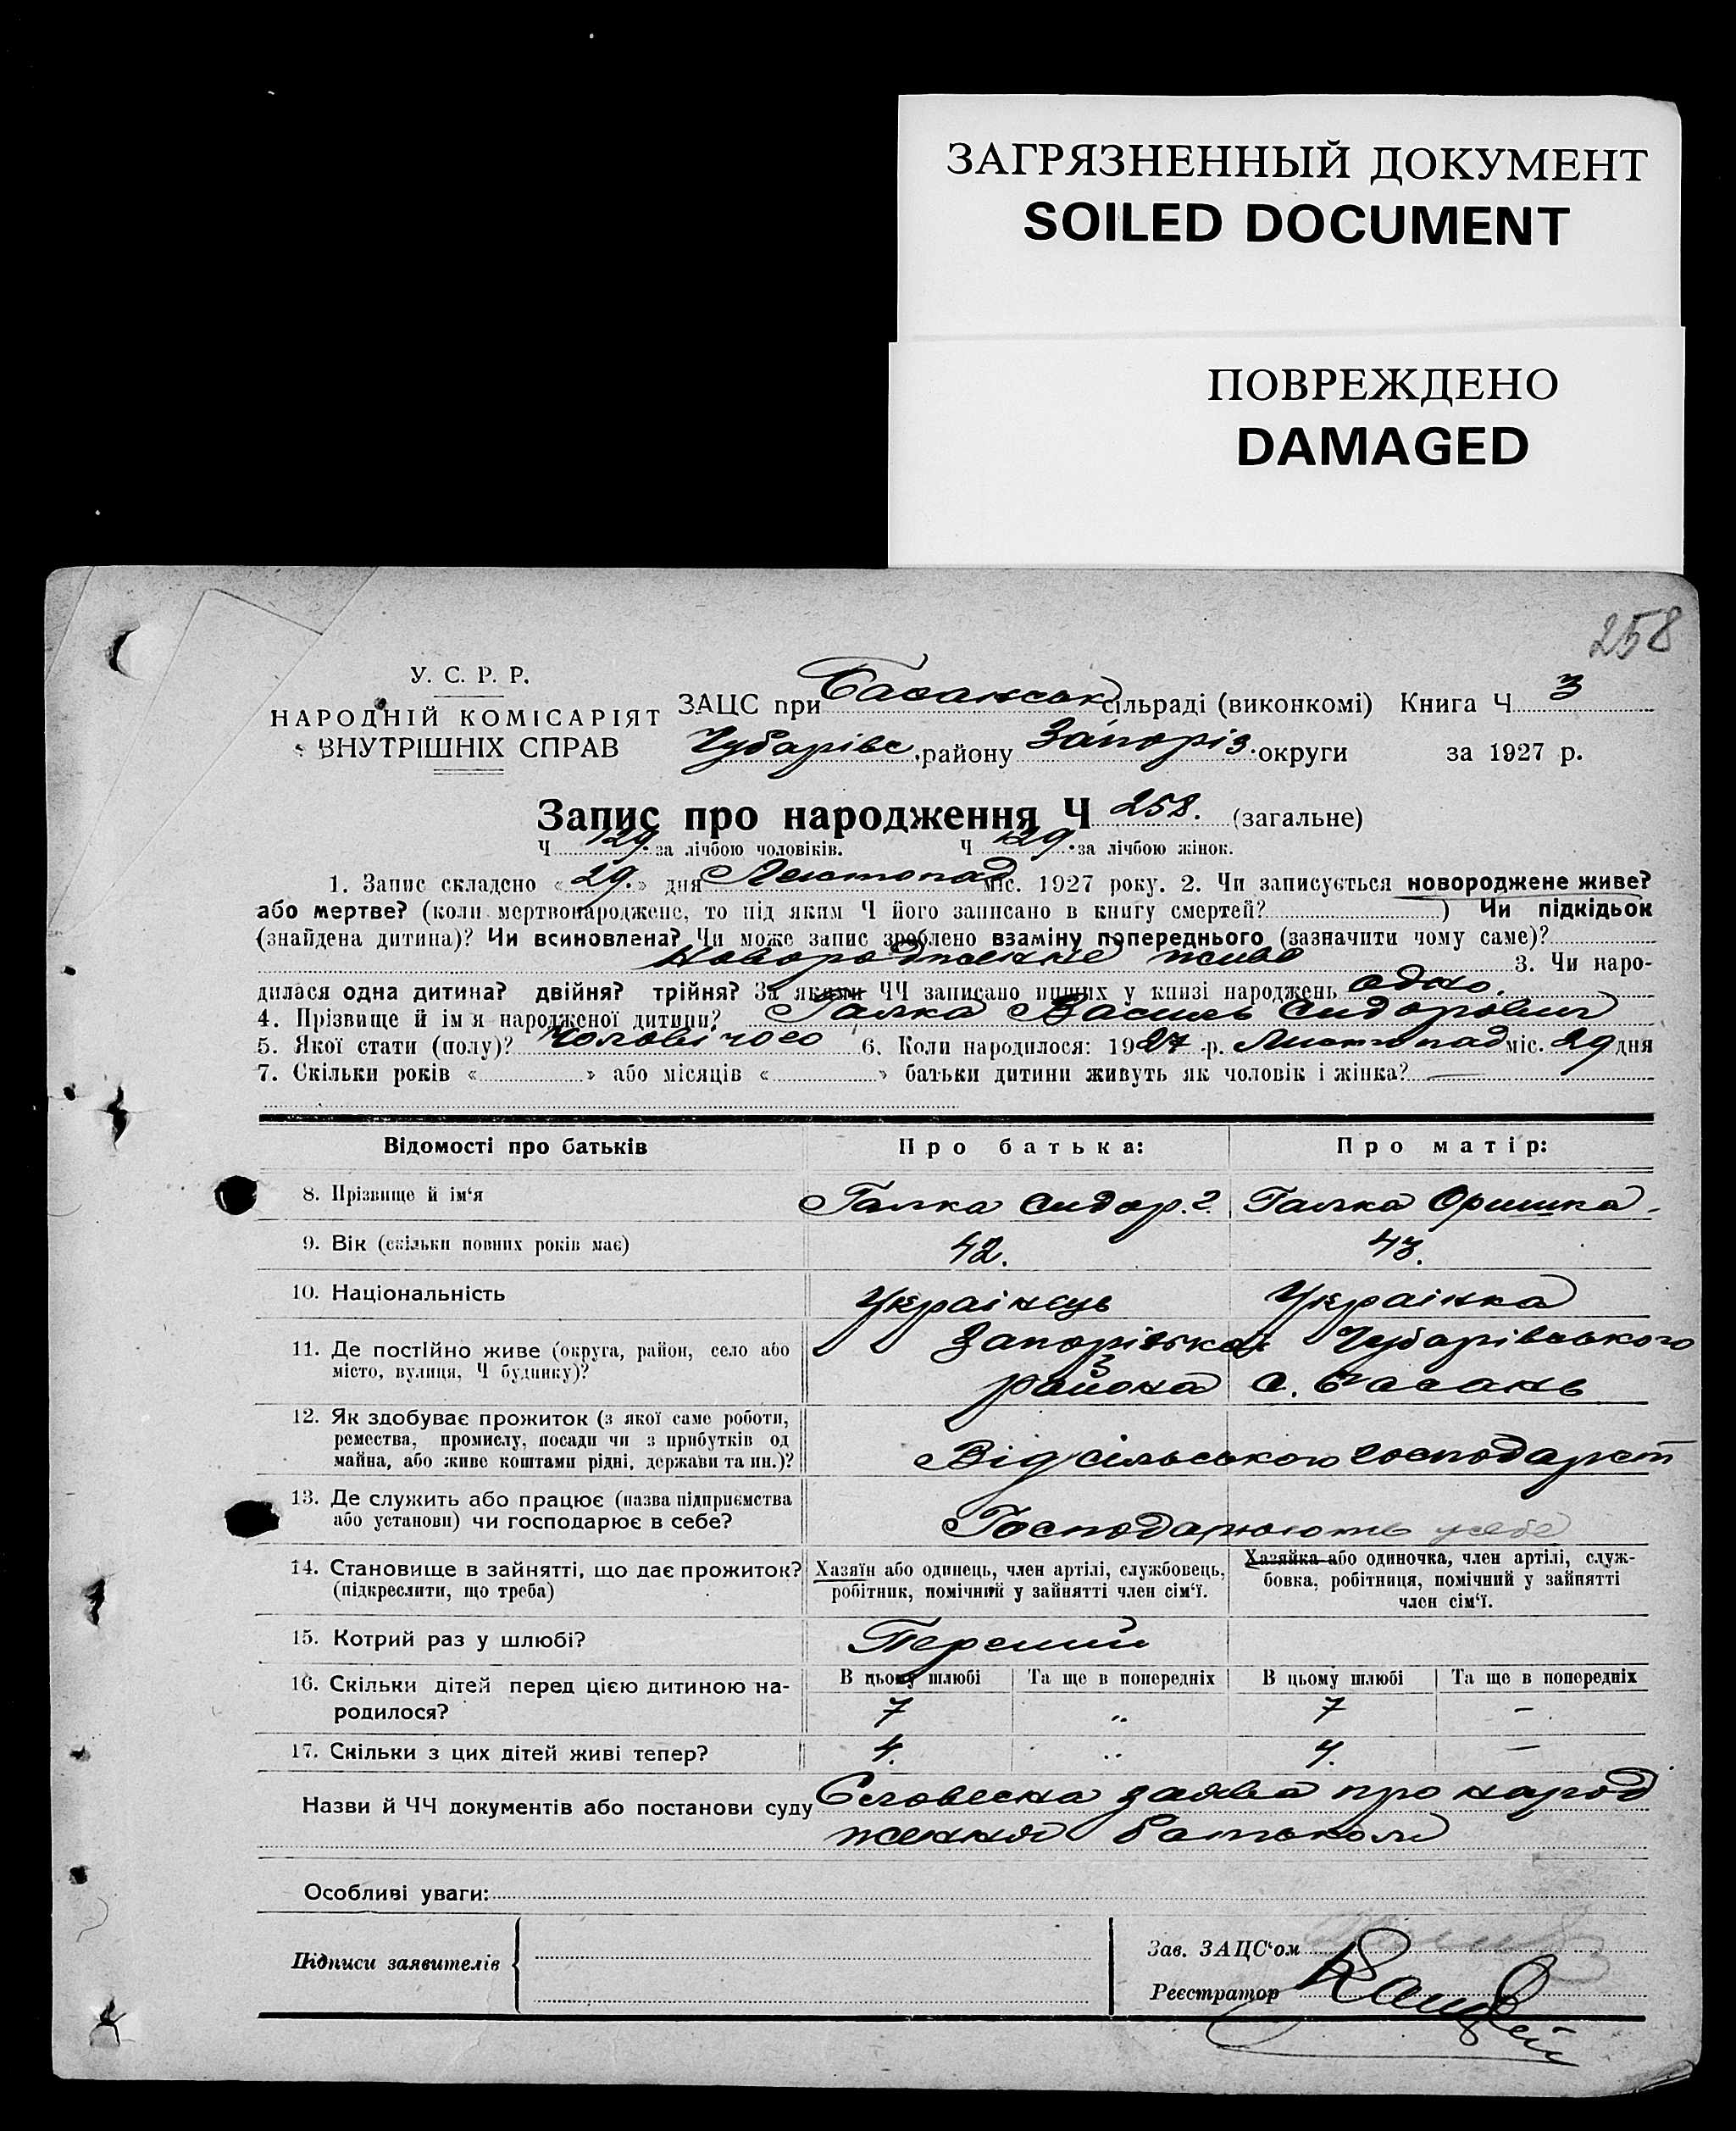 ЗАГРЯЗНЕННЫЙ ДОКУМЕНТ
SOILED DOCUMENT
ПОВРЕЖДЕНО
DAMAGED
258
У. С. Р. Р.
НАРОДНІЙ КОМІСАРІЯТ
ВНУТРІШНІХ СПРАВ
ЗАЦС при Басанськ сільраді (виконкомі) Книга Ч 3
Чубарівс. району Запоріз. округи за 1927 р.
Запис про народження Ч 258. (загальне)
Ч 129. за лічбою чоловіків. Ч 129. за лічбою жінок.
1. Запис складено «29.» дня Листопад міс. 1927 року. 2. Чи записується новороджене живе?
або мертве? (коли мертвонароджене, то під яким Ч його записано в книгу смертей? ) Чи підкідьок
(знайдена дитина)? Чи всиновлена? Чи може запис зроблено взаміну попереднього (зазначити чому саме)?
Новородженне живе 3. Чи наро-
дилася одна дитина? двійня? трійня? За якими ЧЧ записано инших у книзі народжень одно.
4. Прізвище й імя народженої дитини? Галка Василь Сидорович
5. Якої стати (полу)? Чоловічого 6. Коли народилося: 1927 р. Листопад міс. 29 дня
7. Скільки років « » або місяців « » батьки дитини живуть як чоловік і жінка? —
Відомості про батьків Про батька: Про матір:
8. Прізвище й ім‘я Галка Сидор. Г. Галка Оришка
9. Вік (скільки повних років має) 42. 43.
10. Національність Українець Українка
11. Де постійно живе (округа, район, село або Запорізька Чубарівського
місто, вулиця, Ч будинку)? района с. Басань
12. Як здобуває прожиток (з якої саме роботи,
ремества, промислу, посади чи з прибутків од
майна, або живе коштами рідні, держави та ин.)? Від сільського господарст
13. Де служить або працює (назва підприємства
або установи) чи господарює в себе? Господарюють у себе
14. Становище в зайнятті, що дає прожиток? Хазяїн або одинець, член артілі, службовець, Хазяйка або одиночка, член артілі, служ-
(підкреслити, що треба) робітник, помічний у зайнятті член сім‘ї. бовка, робітниця, помічний у зайнятті
член сім‘ї.
15. Котрий раз у шлюбі? Перший
16. Скільки дітей перед цією дитиною на- В цьому шлюбі Та ще в попередніх В цьому шлюбі Та ще в попередніх
родилося? 7 „ 7 —
17. Скільки з цих дітей живі тепер? 4. „ 4. —
Назви й ЧЧ документів або постанови суду Словесна заява про народ
ження батьком
Особливі уваги:
Підписи заявителів
Зав. ЗАЦС‘ом
Реєстратор